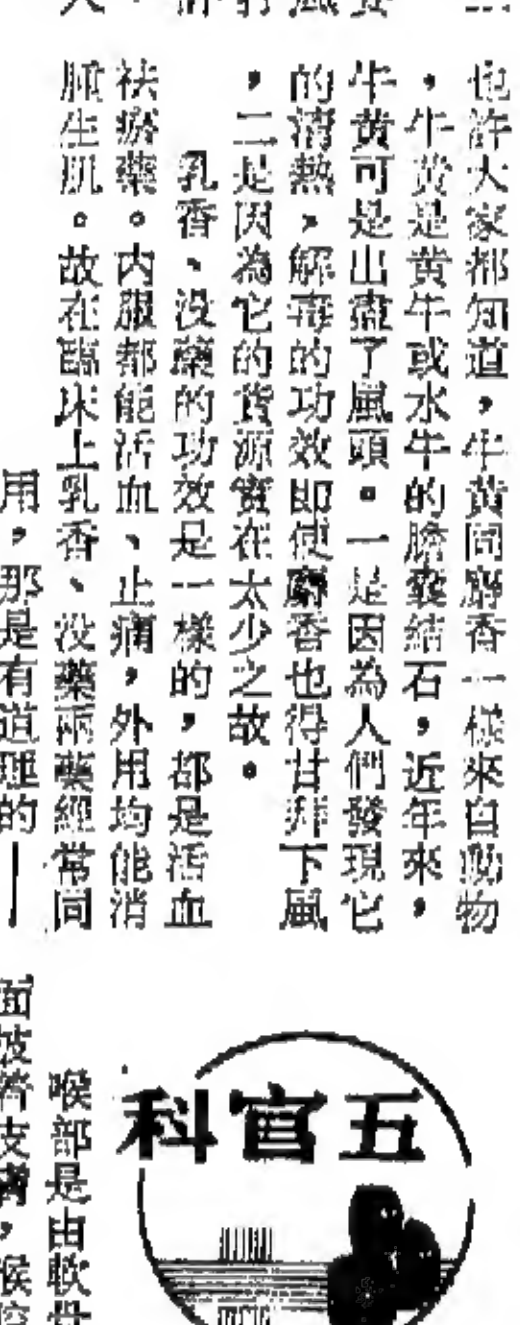 也許大家都知道，牛黄同麝香一樣來自動物
，牛黄是黄牛或水牛的膽囊結石，近年來，
牛黄可是出盡了風頭。一是因為人們發現它
的清熱，解毒的功效即使麝香也得甘拜下風
，二是因為它的貨源實在太少之故。
乳香、没藥的功效是一樣的，都是活血
祛瘀藥。内服都能活血、止痛，外用均能消
腫生肌。故在臨床上乳香、没藥兩藥經常同
用，那是有道理的—
五官科
喉部是由軟骨